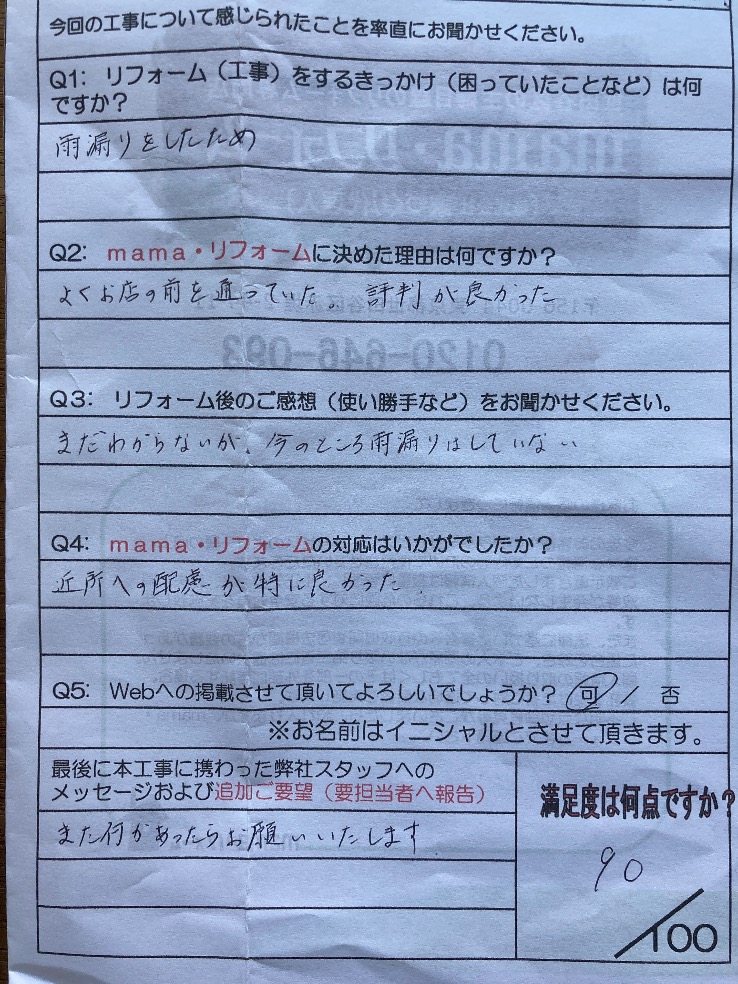 今回の工事について感じられたことを率直にお聞かせください。
Q1: リフォーム（工事）をするきっかけ（困っていたことなど）は何
ですか？
雨漏りをしたため
Q2: mama・リフォームに決めた理由は何ですか？
よくお店の前を通っていた。評判が良かった
Q3: リフォーム後のご感想（使い勝手など）をお聞かせください。
まだわからないが、今のところ雨漏りはしていない
Q4: mama・リフォームの対応はいかがでしたか？
近所への配慮が特に良かった。
Q5: Webへの掲載させて頂いてよろしいでしょうか？ 可 / 否
※お名前はイニシャルとさせて頂きます。
最後に本工事に携わった弊社スタッフへの
メッセージおよび追加ご要望（要担当者へ報告）
また何かあったらお願いいたします
満足度は何点ですか？
90
/100